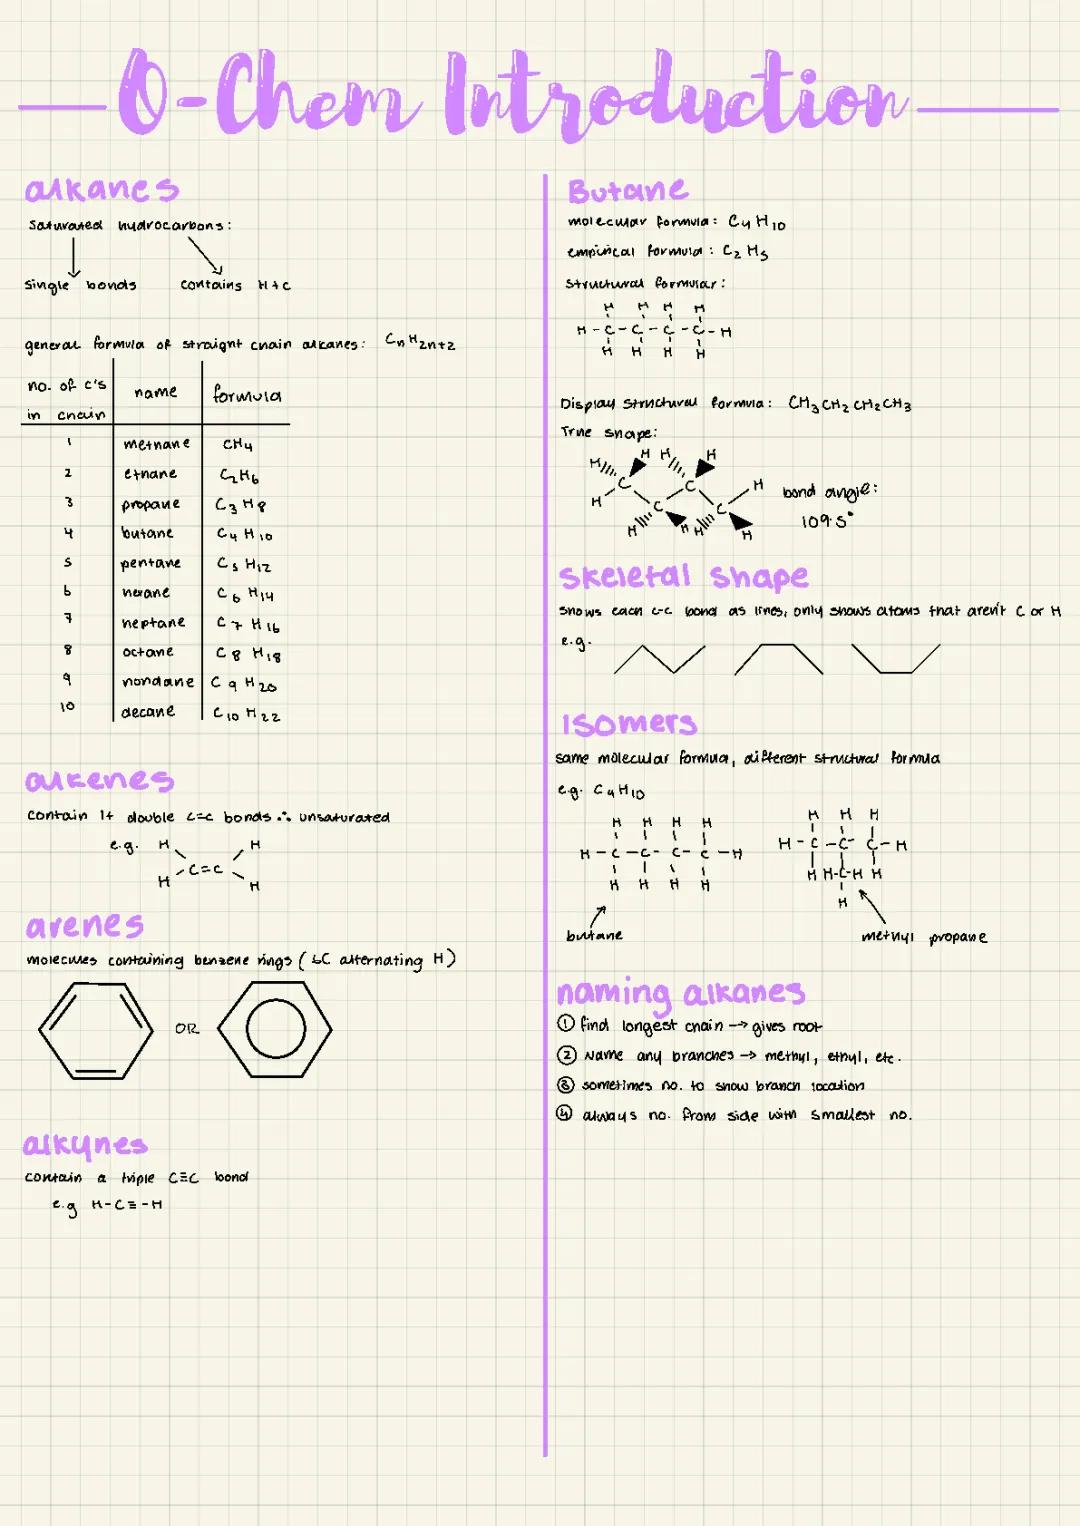 O-Chem Introduction
alkanes
Saturated hydrocarbons:
Single bonds contains H+C
general formula of straight chain alkanes: CnH2n+2
no. of C's in chain name formula
1 methane CH4
2 ethane C2H6
3 propane C3H8
4 butane C4H10
5 pentane C5H12
6 hexane C6H14
7 heptane C7H16
8 octane C8H18
9 nondane C9H20
10 decane C10H22
alkenes
contain 1+ double C=C bonds ∴ unsaturated
e.g. H H
C=C
H H
arenes
molecules containing benzene rings (6C alternating H)
OR
alkynes
contain a triple C≡C bond
e.g H-C≡-H
Butane
molecular formula: C4H10
empirical formula: C2H5
structural formular:
H H H H
H-C-C-C-C-H
H H H H
Display structural formula: CH3CH2CH2CH3
True shape:
H H H H
C C H
H C C
H H H H
bond angle:
109.5°
skeletal shape
shows each C-C bond as lines, only shows atoms that aren't C or H
e.g.
isomers
same molecular formula, different structural formula
e.g. C4H10
H H H H
H-C-C-C-C-H
H H H H
butane
H H H
H-C-C-C-H
H H-C-H H
H
methyl propane
naming alkanes
① find longest chain → gives root
② Name any branches → methyl, ethyl, etc.
③ sometimes no. to show branch location
④ always no. from side with smallest no.